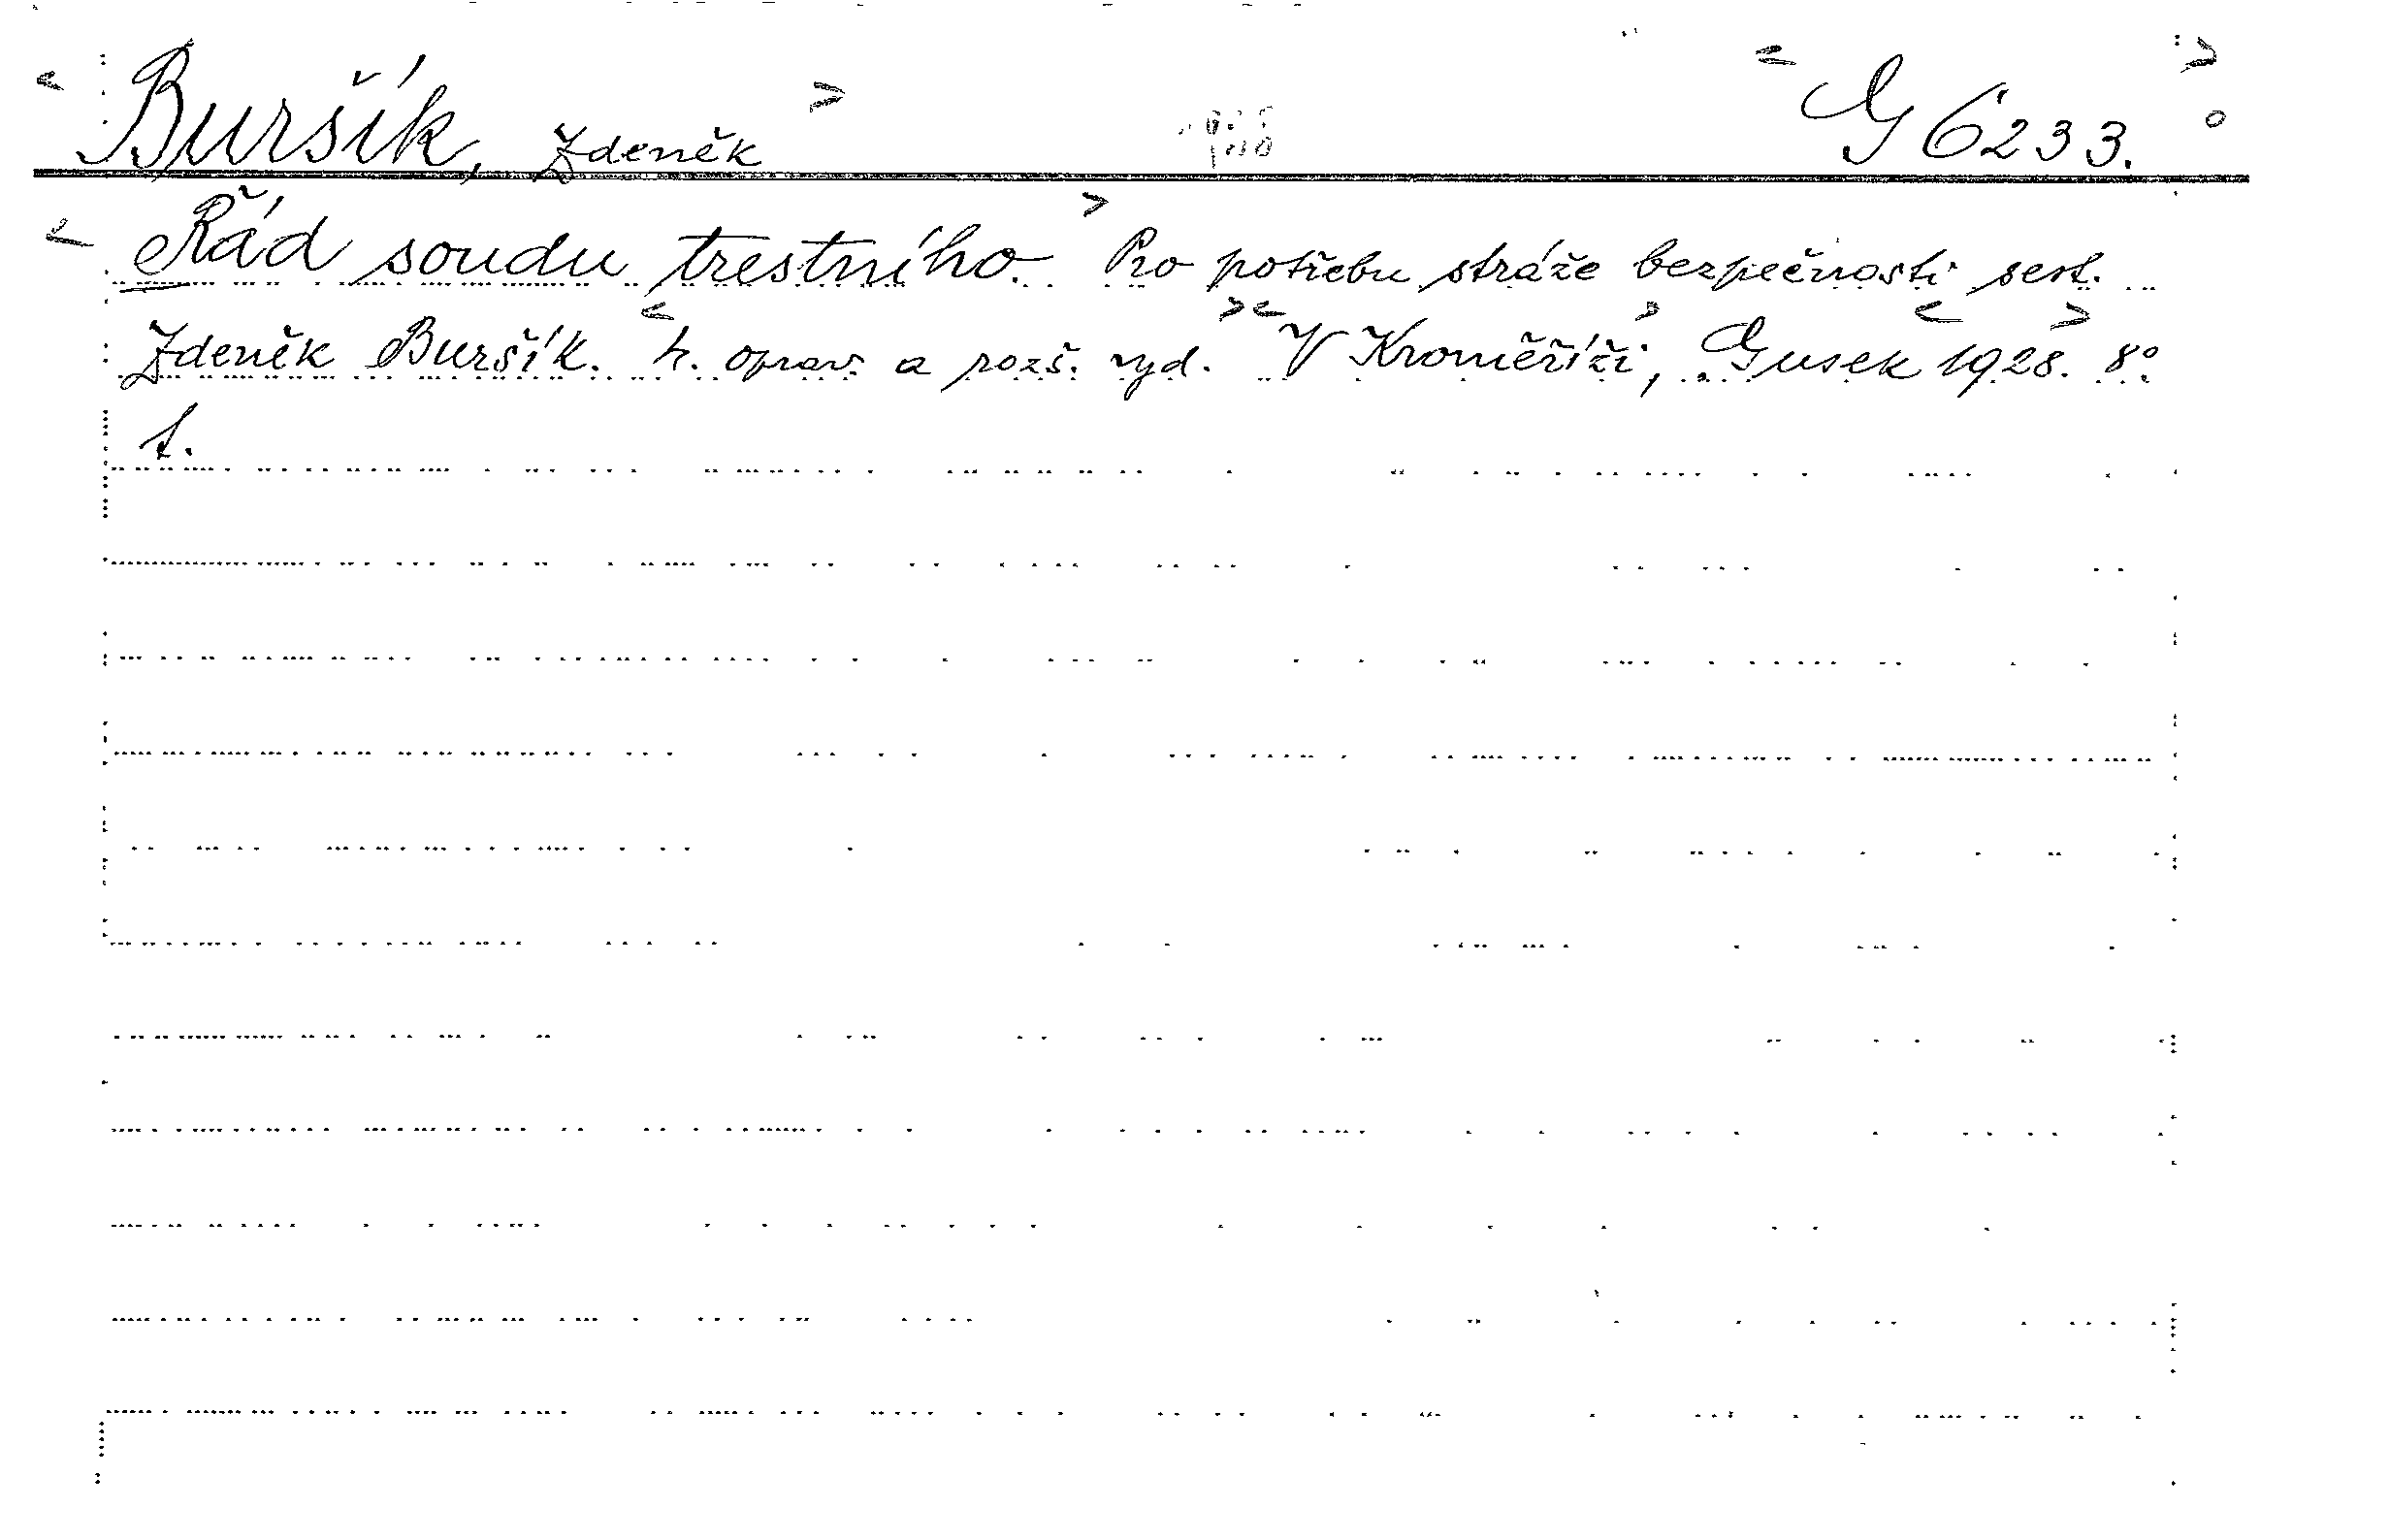 Buršík, Zdeněk G 6233.
Řád soudu trestního. Pro potřebu stráže bezpečnosti sest.
Zdeněk Buršík. h. oprav. a rozš. vyd. V Kroměříži, Gusek 1928. 8°
1.